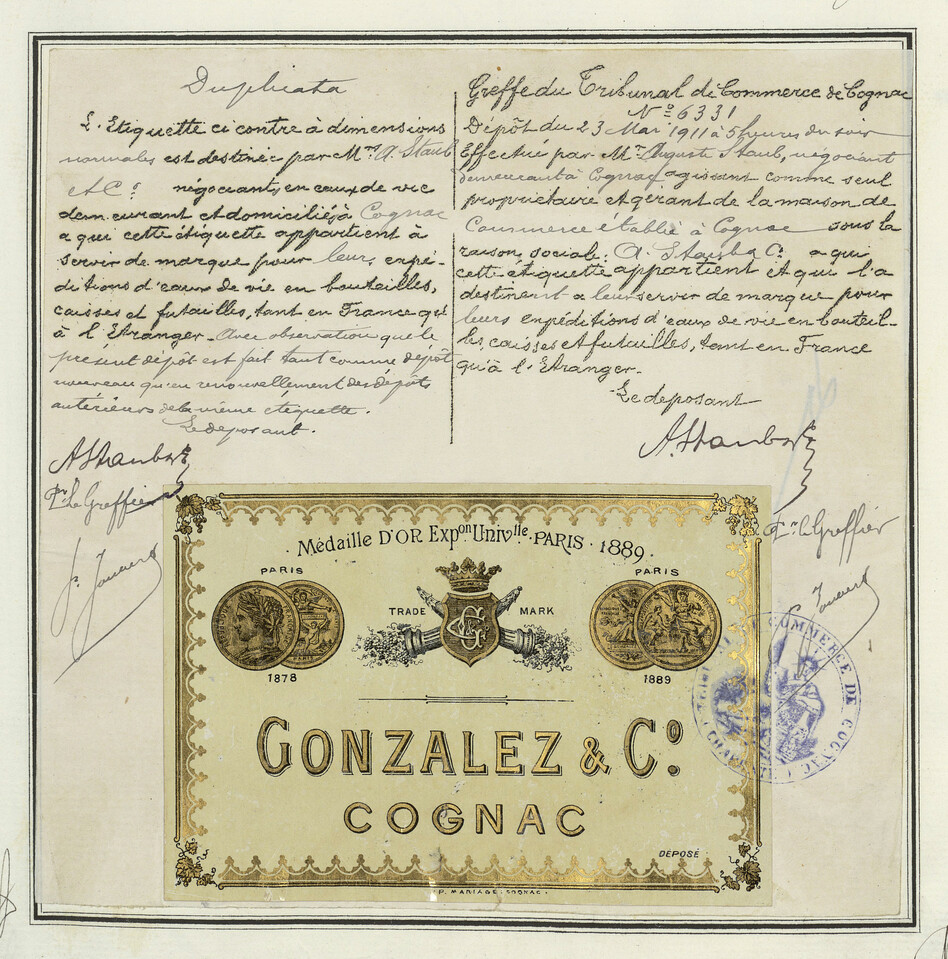 Duplicata
L'Etiquette ci contre à dimensions
normales est destinée par Mrs A. Staub
et Co négociants en eaux de vie
demeurant et domiciliés à Cognac
a qui cette étiquette appartient à
servir de marque pour leurs expé-
ditions d'eaux de vie en bouteilles,
caisses et futailles, tant en France qu'
à l'Etranger. Avec observation que le
présent dépôt est fait tant comme dépôt
nouveau qu'en renouvellement des dépôts
antérieurs de la même étiquette.
Le déposant.
A Staub
Pr Le Greffier
Greffe du Tribunal de Commerce de Cognac
No 6331
Dépôt du 23 Mai 1911 à 5 heures du soir
Effectué par Mr Auguste Staub, négociant
demeurant à Cognac agissant comme seul
propriétaire et gérant de la maison de
Commerce établie à Cognac sous la
raison sociale: A. Staub & Co a qui
cette etiquette appartient et qui l'a
destinent a leur servir de marque pour
leurs expéditions d'eaux de vie en bouteil-
les, caisses et futailles, tant en France
qu'à l'Etranger.
Le deposant
A. Staub
Pr le Greffier
Médaille D'OR Expon Univlle PARIS · 1889.
PARIS
PARIS
TRADE MARK
1878
1889
GONZALEZ & Co.
COGNAC
DÉPOSÉ
P. MARIAGE. COGNAC.
COMMERCE DE COGNAC